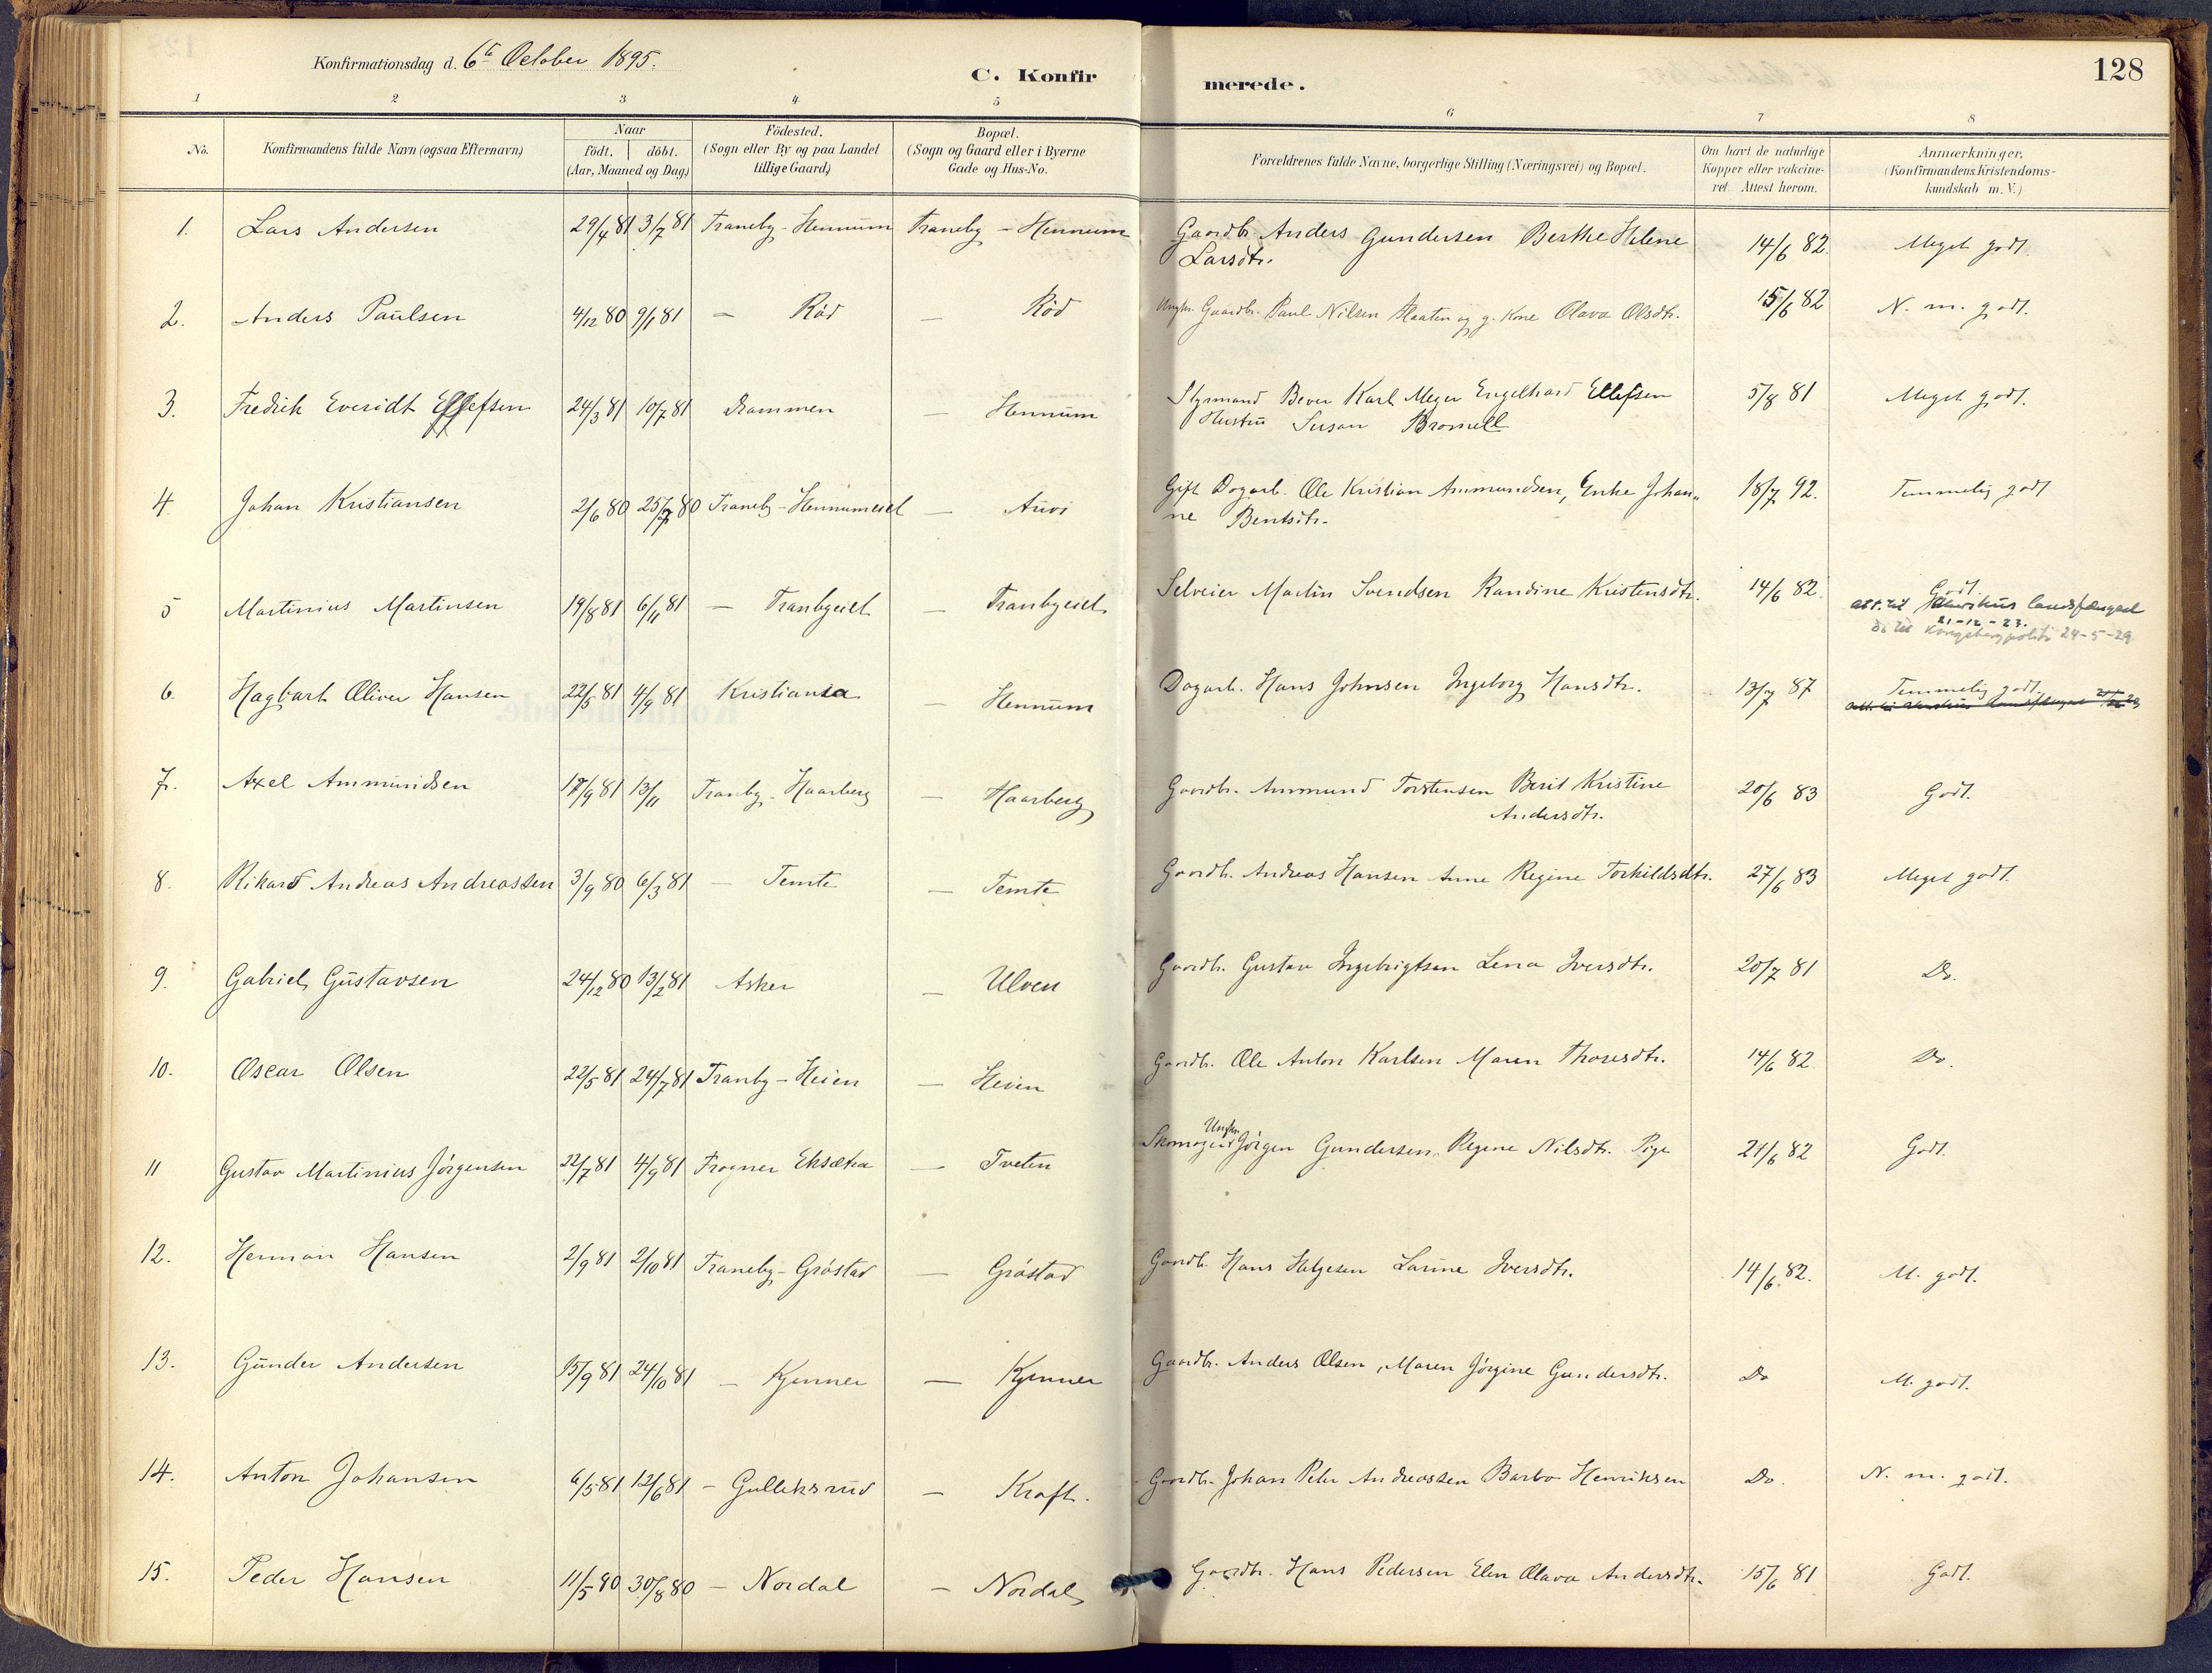 Konfirmationsdag d. 6te October 1895.
C. Konfir merede. 128
1 2 3 4 5 6 7 8
No. Konfirmandens fulde Navn (ogsaa Efternavn) Naar födt. döbt. (Aar, Maaned og Dag) Födested. (Sogn eller By og paa Landet tillige Gaard) Bopæl. (Sogn og Gaard eller i Byerne Gade og Hus-No. Forældrenes fulde Navne, borgerlige Stilling (Næringsvei) og Bopæl. Om havt de naturlige Kopper eller vakcineret. Attest herom. Anmærkninger. (Konfirmandens Kristendomskundskab m. V.)
1. Lars Andersen 29/4 81 3/7 81 Traneby - Hennum Traneby - Hennum Gaardbr. Anders Gundersen Berthe Helene 14/6 82. Meget godt.
Larsdtr.
2. Anders Paulsen 4/12 80 9/1 81 — Röd — Röd Ungkr. Gaardbr. Paul Nilsen og g. Kone Olava Olsdtr. 15/6 82 N. m. godt.
3. Fredrik Everidt Ellefsen 24/3 81 10/7 81 Drammen — Hennum Styrmand Bever Karl Meyer Engelhard Ellefsen 5/8 81 Meget godt.
Hustru Susan Bromell
4. Johan Kristiansen 2/6 80 25/7 80 Traneby - Hennumeiet — Auvi Gift Dagarb. Ole Kristian Ammundsen, Enke Johan„ 18/7 92. Temmelig godt
ne Bentsdtr.
5 Martinius Martinsen 19/8 81 6/11 81 — Tranbyeiet — Tranbyeiet Selveier Martin Svendsen Randine Kristensdtr. 14/6 82. Godt.
att. til landsfængsel
21-12-23.
Do til Kongsberg politi 24-5-29
6. Hagbart Oliver Hansen 22/5 81 4/9 81 Kristiania — Hennum Dagarb. Hans Johnsen Ingeborg Hansdtr. 13/7 87 Temmelig godt.
7. Axel Ammundsen 17/9 81 13/11 Tranby - Haarberg — Haarberg Gaardbr. Ammund Torstensen Berit Kristine 20/6 83 Godt.
Andersdtr.
8. Rikard Andreas Andreassen 3/9 80 6/3 81 — Temte — Temte Gaardbr. Andreas Hansen Anne Regine Torkildsdtr. 27/6 83 Meget godt.
9. Gabriel Gustavsen 24/12 80 13/2 81 Asker — Ulven Gaardbr. Gustav Ingebrigtsen Lena Iversdtr. 20/7 81 Do.
10. Oscar Olsen 22/5 81 24/7 81 Tranby - Heien — Heien Gaardbr. Ole Anton Karlsen Maren Thoresdtr. 14/6 82. Do.
11 Gustav Martinius Jörgensen 22/7 81 4/9 81 Frogner Eksætra — Tveten Skomager Ungkr. Jörgen Gundersen, Regine Nilsdtr. Pige 21/6 82 Godt.
12. Herman Hansen 2/9 81 2/10 81 Traneby - Gröstad — Gröstad Gaardb. Hans Helgesen Larine Iversdtr. 14/6 82. M. godt.
13. Gunder Andersen 15/9 81 24/10 81 — Kjenner — Kjenner Gaardbr. Anders Olsen, Maren Jörgine Gundersdtr. Do M. godt.
14. Anton Johansen 6/5 81 12/6 81 — Gulliksrud — Kraft. Gaardbr. Johan Peter Andreassen Barbo Henriksen Do. N. m. godt.
15. Peder Hansen 11/5 80 30/8 80 — Nordal — Nordal Gaardbr. Hans Pedersen Elen Olava Andersdtr. 15/6 81 Godt.